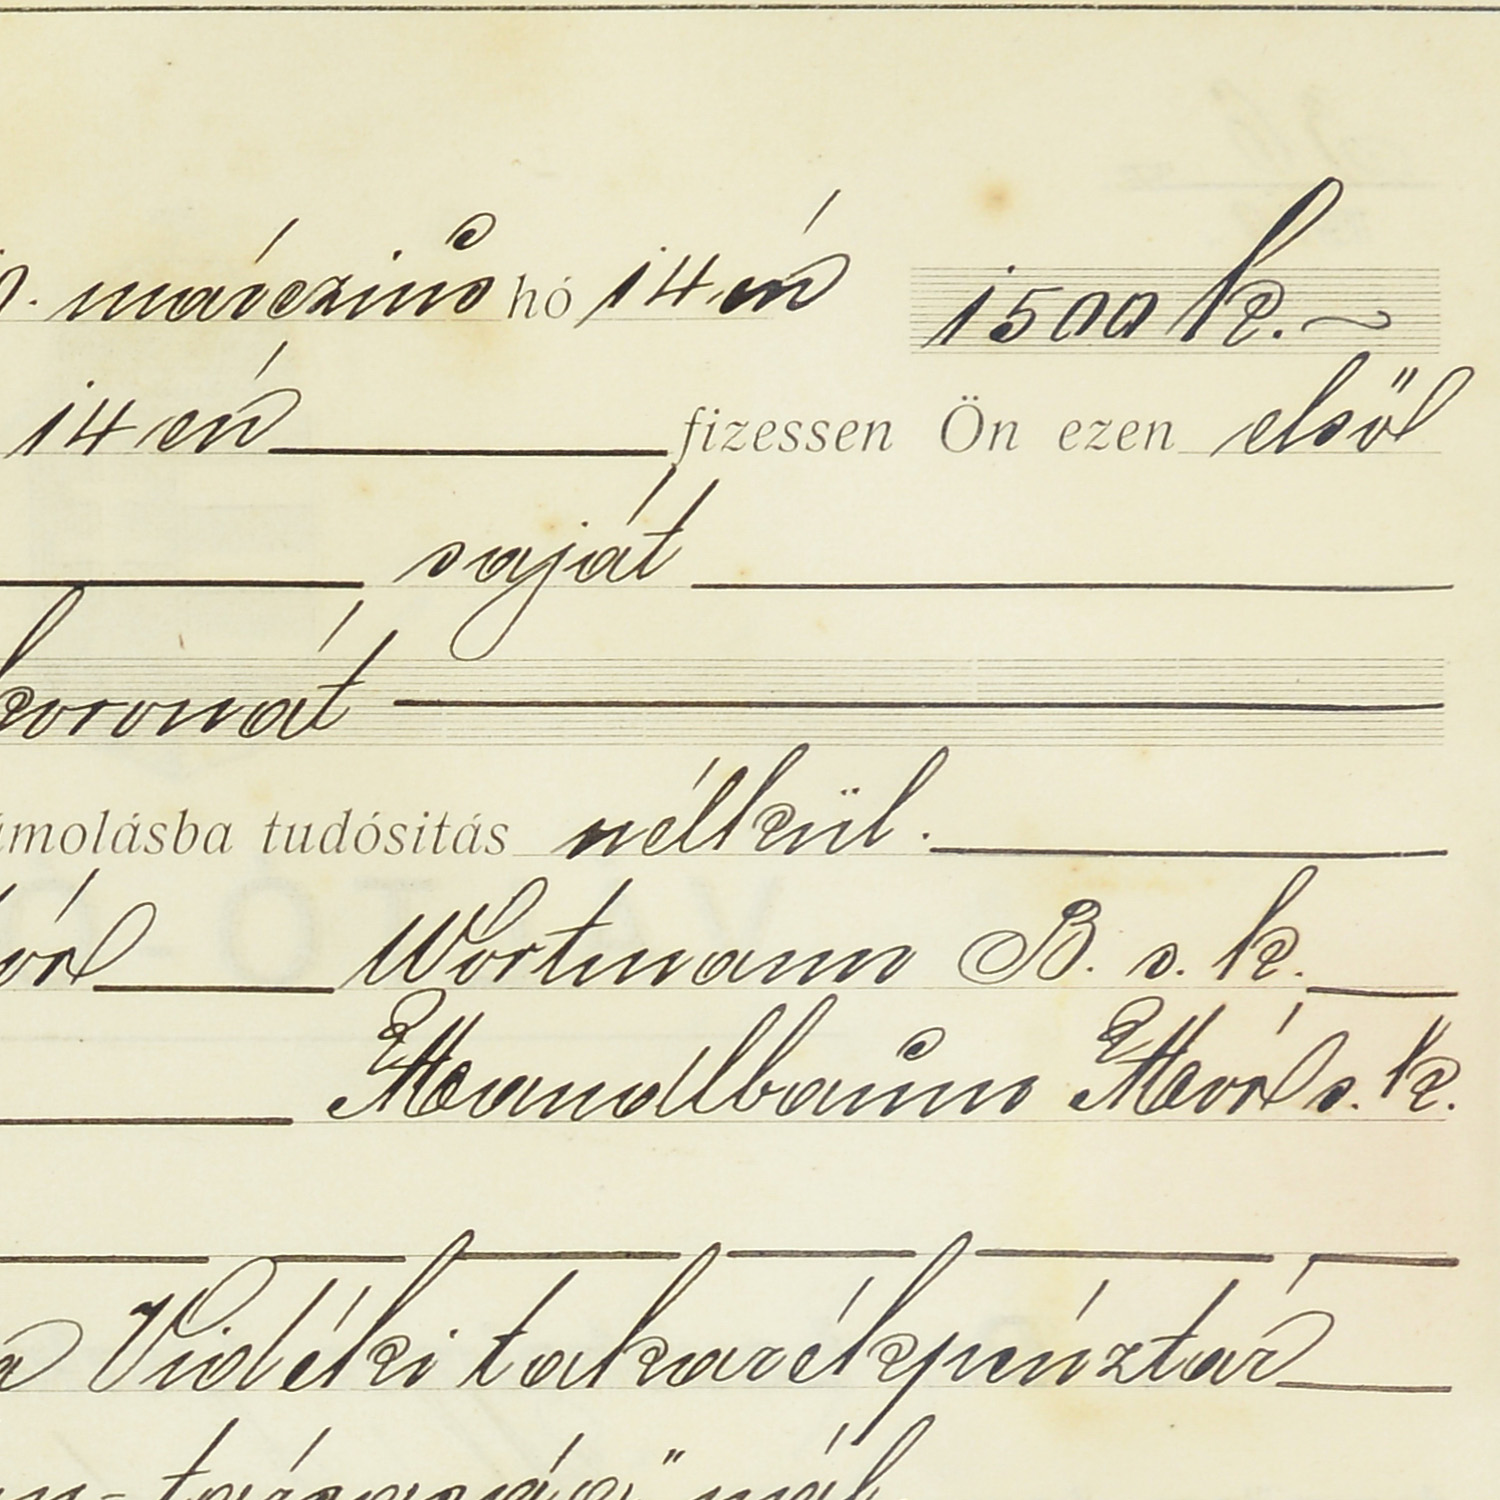 márczius hó 14 én 1500 k.
14 én fizessen Ön ezen első
saját
koronát
ámolásba tudósitás nélkül.
Wortmann B. s. k.
Mandlbaum Mór s. k.
Vidéki takarékpénztár
társaság" nál